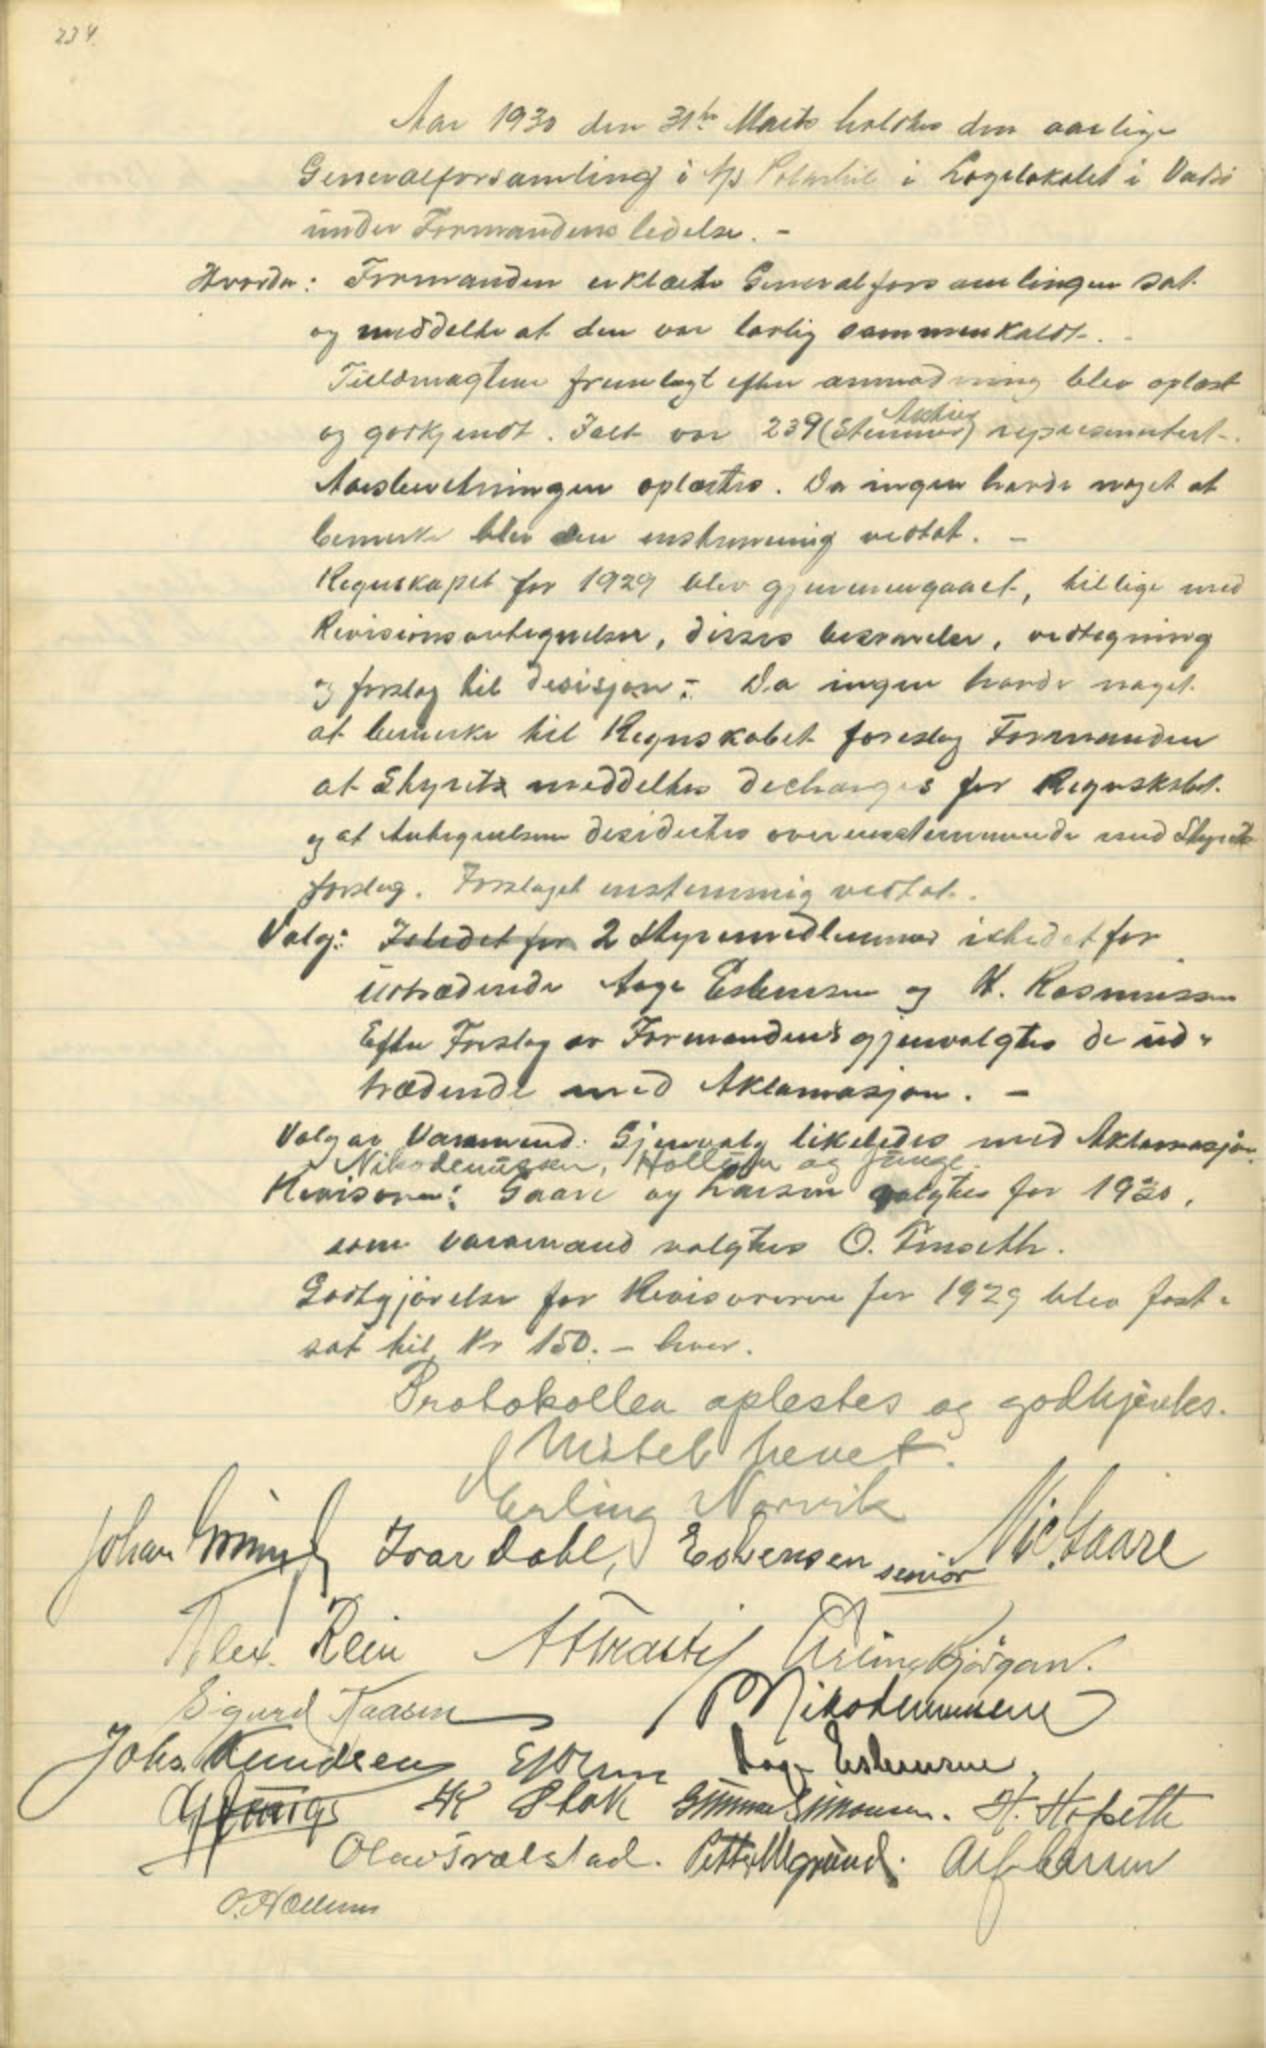 234
Aar 1930 den 31te Marts holdtes den aarlige
Generalforsamling i A/S Polarbil i Logelokalet i Vadsø
under Formandens ledelse. -
Hvorda: Formanden erklærte Generalforsamlingen sat
og meddelte at den var lovlig sammenkaldt.
Fuldmagtene fremlagt efter anmodning blev oplæst
og godkjendt. Ialt var 239 (Stemmer) Aktier representert.
Aarsberetningen oplæstes. Da ingen havde noget at
bemerke blev den enstemmig vedtat. -
Regnskapet for 1929 blev gjennemgaaet, tillige med
Revisionsantegnelser, disses besvarelse, vedtegning
og forslag til desisjon. Da ingen havde noget
at bemerke til Regnskabet foreslog Formanden
at Styret meddeltes decharges for Regnskabet.
og at Antegnelsene desidertes overensstemmende med Styrets
forslag. Forslaget enstemmig vedtat.
Valg: Istedet for 2 Styremedlemmer istedet for
Uttrædende Aage Esbensen og H. Rasmussen
Efter Forslag av Formanden gjenvalgtes de ud-
trædende med Aklamasjon. -
Valg av Varamend. Gjenvalg likeledes med Aklamasjon.
Nikodemussen, Hollum og Junge.
Revisorer: Gaare og Larsen valgtes for 1930,
som varamand valgtes O.
Godtgjörelse for Revisorerne for 1929 blev fast-
sat til Kr 150. - hver.
Protokollen oplestes og godkjentes.
Mötet hevet.
Erling Norvik
Johan Ivar Dahl, Esbensen senior Nic. Gaare
Alex. Rein Kjørgan.
Sigurd Kaasen Nikodemussen
Johs. Knudsen Aage Esbensen
Gunnar Simonsen. H. Hofseth
Olav Petter Alf Larsen
O. Hollum